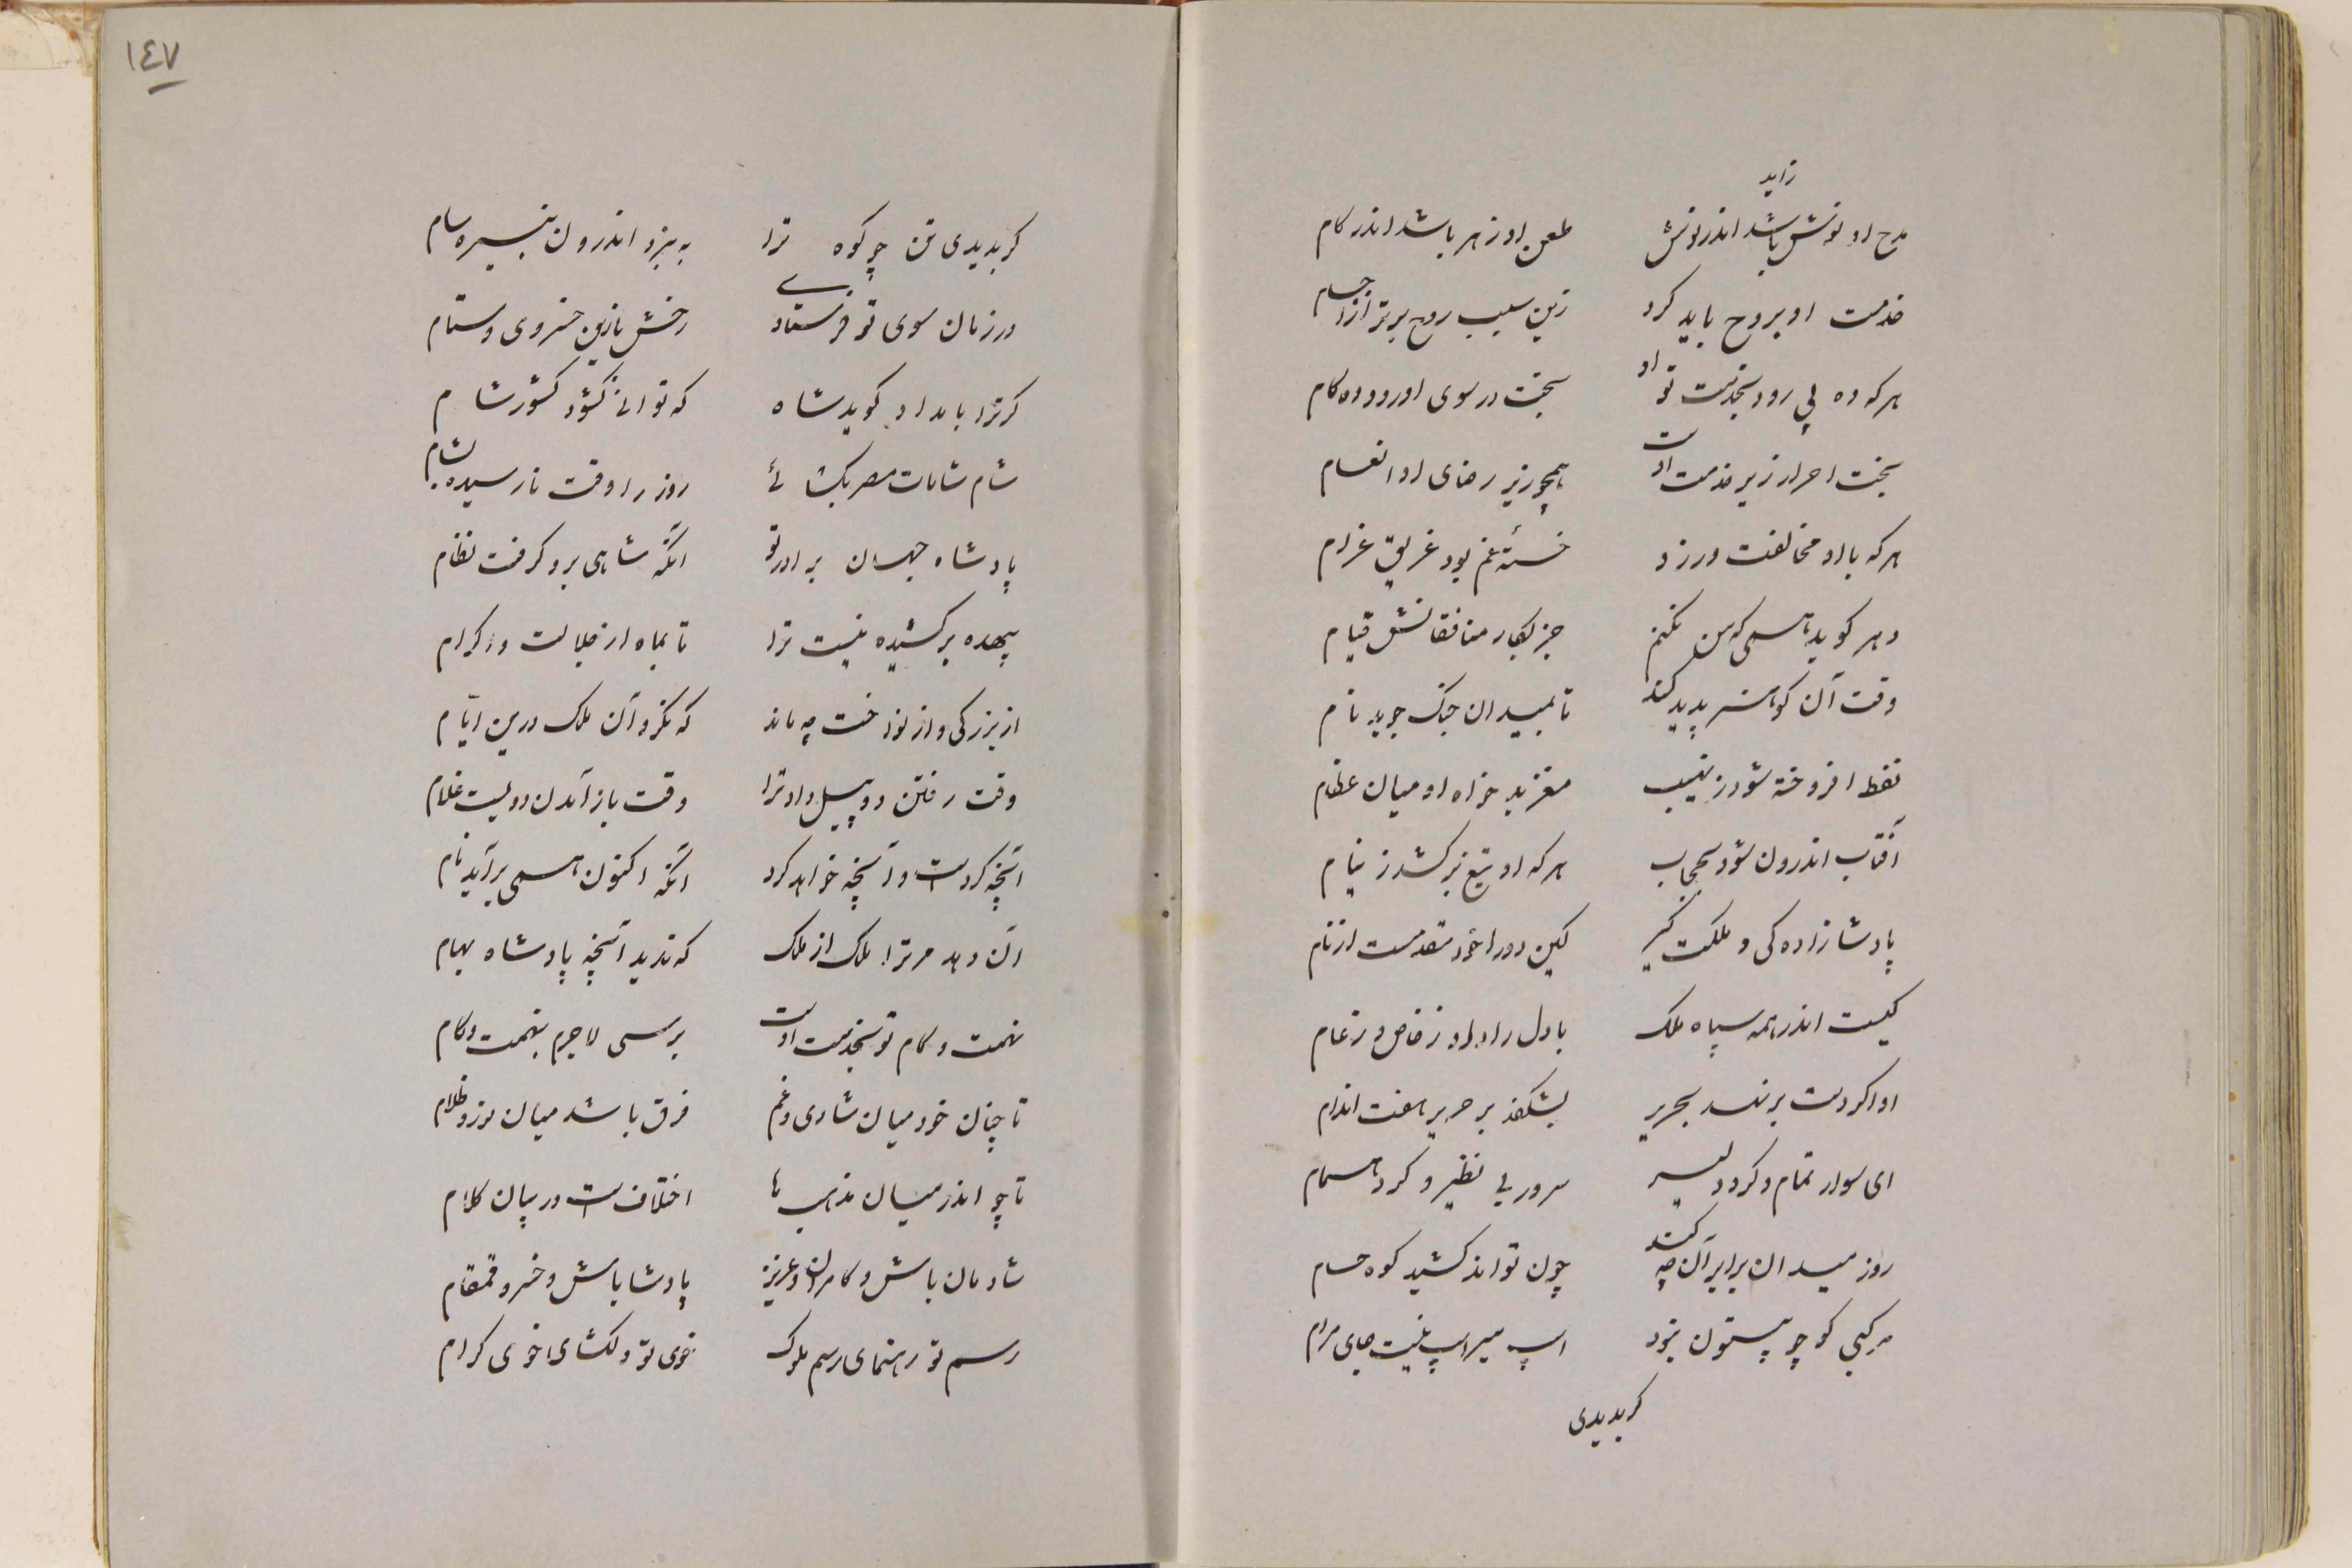 زاید
مدح او نوش باشد اندر نوش طعن او زهر باشد اندر کام
خدمت او بروح باید کرد زین سبب روح برتر از اجسام
هرکه ده پی رود بخدمت تو او بخت در سوی او رود ده کام
بخت احرار زیر خدمت اوست همچو زیر رضای او انعام
هرکه با او مخالفت ورزد خستهٔ غم بود غریق غرام
دهر کوید همی که من نکنم جز بکار منافقانش قیام
وقت آن کو هنر پدید کند تا بمیدان جنک جوید نام
نفط افروخته شود ز نهیب مغز بدخواه او میان عظام
آفتاب اندرون شود بحجاب هرکه او تیغ برکشد ز نیام
پادشا زاده کی و ملکت کیر کین دو را خود مقدمست از نام
کیست اندر همه سپاه ملک با دل راد او ز خاص و ز عام
او اکر دست برنهد بحریر بشکفد بر حریر هفت اندام
ای سوار تمام و کرد دلیر سرور بی نظیر و کرد همام
روز میدان برابر آن چه کند چون تواند کشید کوه حسام
مرکبی کو چو بیستون نبود اسپ میراسپ نیست جای مرام
کر بدیدی
١٤٧
کر بدیدی تن چو کوه ترا به نبرد اندرون نبیره سام
در زمان سوی تو فرستادی رخش با زین خسروی و ستام
کر ترا بامداد کوید شاه که توانی کشود کشور شام
شام شامات مصر بکشائی روز را وقت نارسیده بشام
پادشاه جهان برادر تو انکه شاهی برو کرفت نظام
بیهده برکشیده نیست ترا تا بماه از جلالت و اکرام
از بزرکی و از نواخت چه ماند که نکرد آن ملک درین ایّام
وقت رفتن دو پیل داد ترا وقت باز آمدن دویست غلام
آنچه کردست و آنچه خواهد کرد انکه اکنون همی برآید نام
آن دهد مر ترا ملک از ملک که ندید آنچه پادشاه بهام
نهمت و کام تو بخدمت اوست برسی لاجرم بنهمت و کام
تا چنان خود میان شادی و غم فرق باشد میان نور و ظلام
تا چو اندر میان مذهب ها اختلاف ست در بیان کلام
شادمان باش و کامران و عزیز پادشا باش و خسرو قمقام
رسم تو رهنمای رسم ملوک خوی تو دلکشای خوی کرام